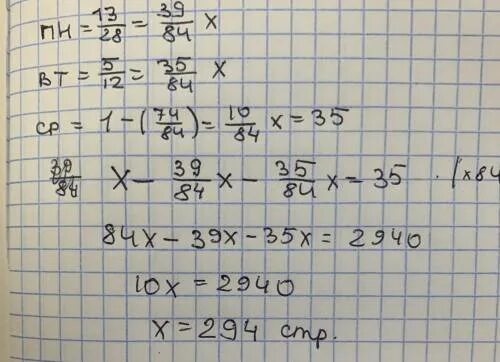 ПН = 13/28 = 39/84 x
ВТ = 5/12 = 35/84 x
СР = 1 - (74/84) = 10/84 x = 35
x - 39/84 x - 35/84 x = 35 · | x84
84x - 39x - 35x = 2940
10x = 2940
x = 294 стр.